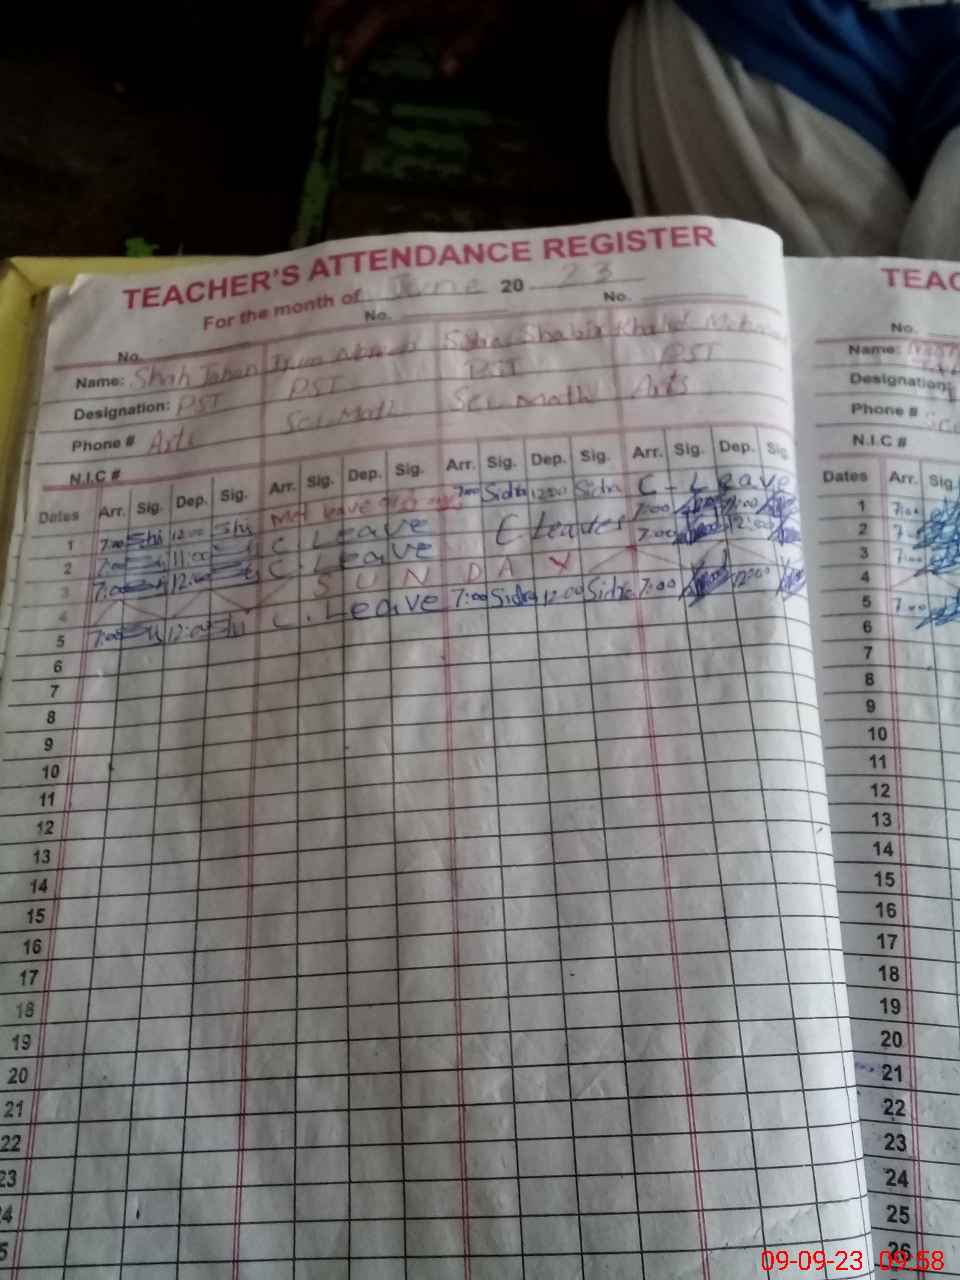 TEACHER'S ATTENDANCE REGISTER
For the month of June 20 23
No. No. No.
Name: Shah Jahan Sidra Shabir Khalid
Designation: PST PST PST PST
Phone # Arts Sci, Math Sci, Math Arts
N.I.C #
Dates Arr. Sig. Dep. Sig. Arr. Sig. Dep. Sig. Arr. Sig. Dep. Sig. Arr. Sig. Dep. Sig.
1 7:00 Sh 12:00 Sh leave 7:00 Sidra 12:00 Sidra C. Leave
2 7:00 11:00 C. Leave C Leave 7:00 11:00
3 7:00 12:00 C. Leave 7:00 12:00
4 SUNDAY
5 7:00 12:00 C. Leave 7:00 Sidra 12:00 Sidra 7:00 12:00
6
7
8
9
10
11
12
13
14
15
16
17
18
19
20
21
22
23
TEAC
No.
Name:
Designation:
Phone #
N.I.C #
Dates Arr. Sig.
1 7:00
2
3 7:00
4
5 7:00
6
7
8
9
10
11
12
13
14
15
16
17
18
19
20
21
22
23
24
25
26
09-09-23 09:58